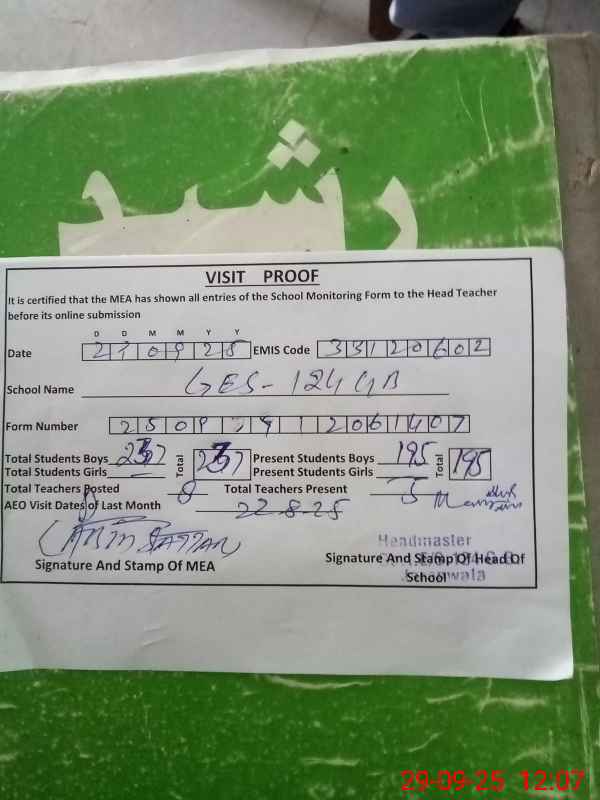 رشید
VISIT PROOF
It is certified that the MEA has shown all entries of the School Monitoring Form to the Head Teacher
before its online submission
D D M M Y Y
Date EMIS Code 33120602
School Name GES-124 GB
Form Number
Total Students Boys 237 Total 237 Present Students Boys 195 Total 195
Total Students Girls — Present Students Girls —
Total Teachers Posted 8 Total Teachers Present 5
AEO Visit Dates of Last Month 22-8-25
Headmaster
Signature And Stamp Of MEA Signature And Stamp Of Head Of
School
29-09-25 12:07